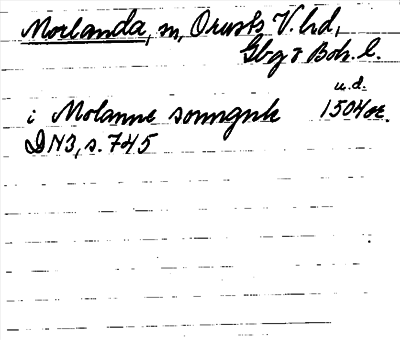 Morlanda, sn, Orusts V. hd,
Gbg o Boh. l.
u.d.
i Molanne sonngnk 1504 or.
DN3, s. 745